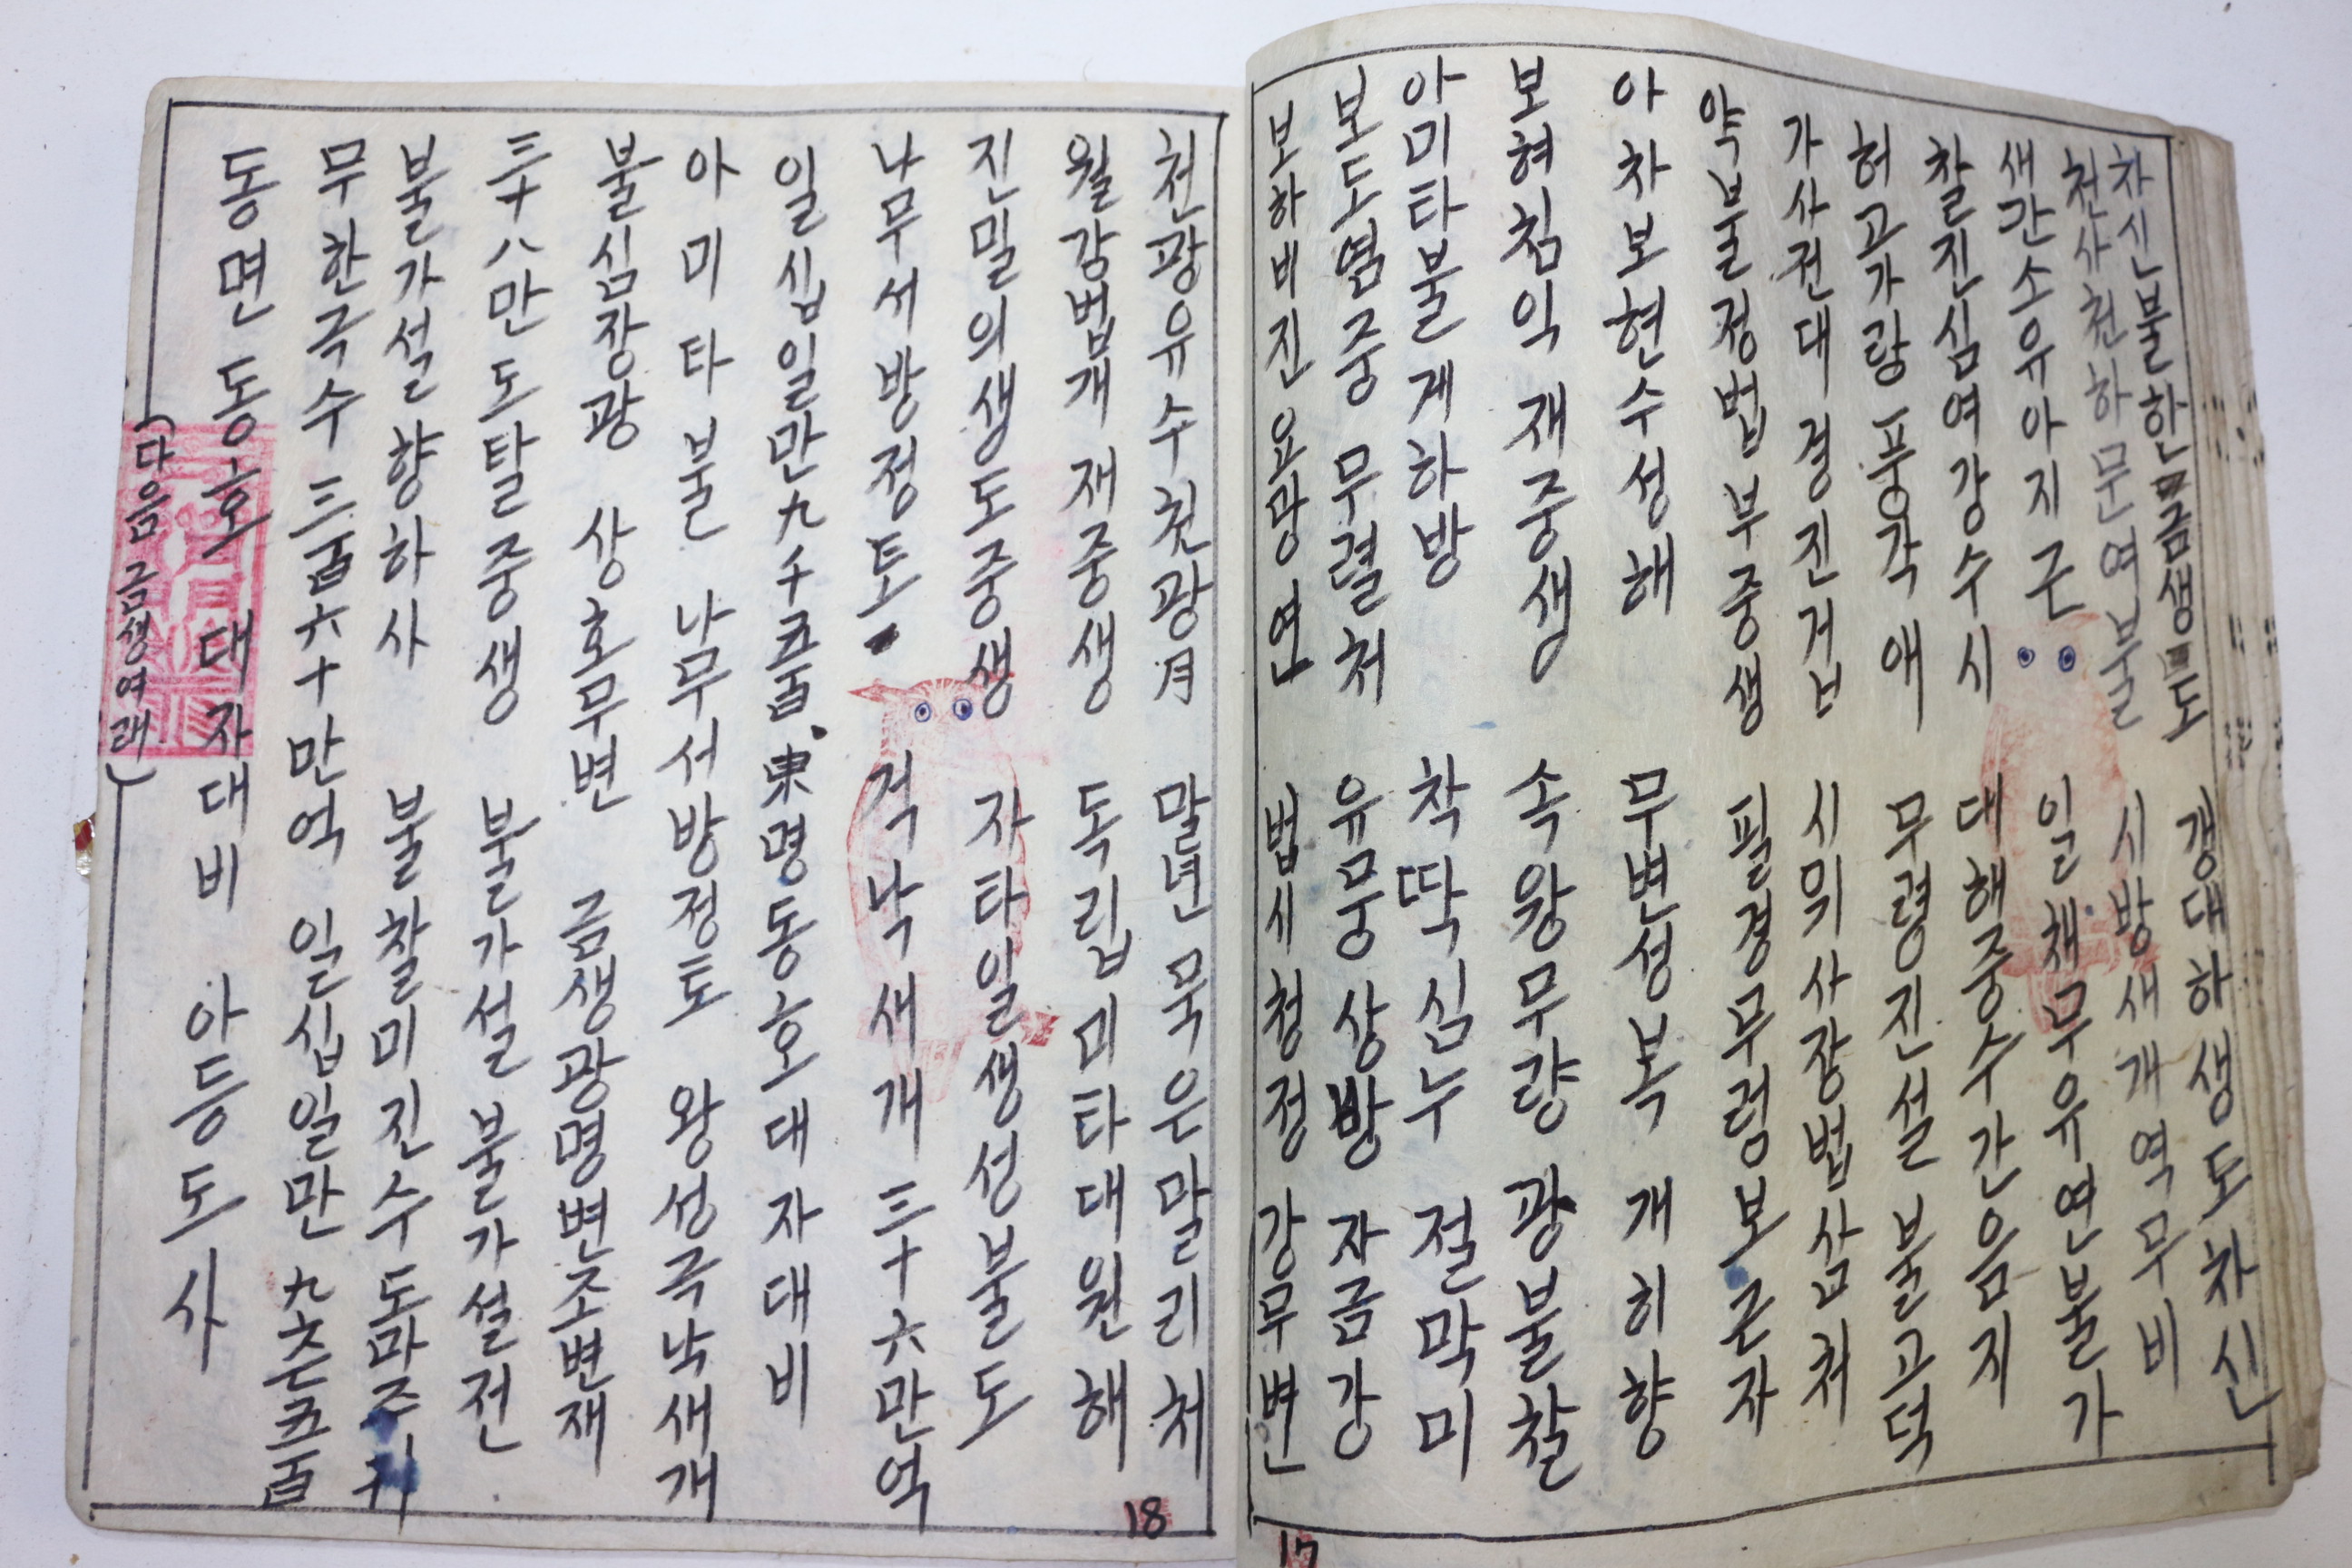 차신불하금생도 갱대하생도차신
천사천하무여불 시방새개역무비
새간소유아지근 일채무유연불가
찰진심여강수시 대해중수간음지
허고가량풍각애 무령진설불고덕
가사전대경진거브 시위사장법삼처
약불정법부중생 필경무렴보근자
아차보현수성해 무변성복개히향
보혀침익재중생 속왕무량광불찰
아미타불게하방 착딱심누절막미
보도염중무렬처 유뭉상방자금강
보하비진요망연 법시청정강무변
17
천광유수천광月 말변묵은말리처
월강법개재중생 독립미타대원해
진밀의생도중생 자타일생성불도
나무서방정토 걱낙새개三十六만억
일십일만九千五百 東명동호대자대비
아미타불 나무서방정토 왕성극낙새개
불심장광 상호무변 금생광명변조변재
三十八만도탈중생 불가설불가설전
불가설향하사 불찰미진수도마즈귀
무한극수三百六十만억 일십일만九千五百
동면동호대자대비 아등도사
(다음 금생여래)
18